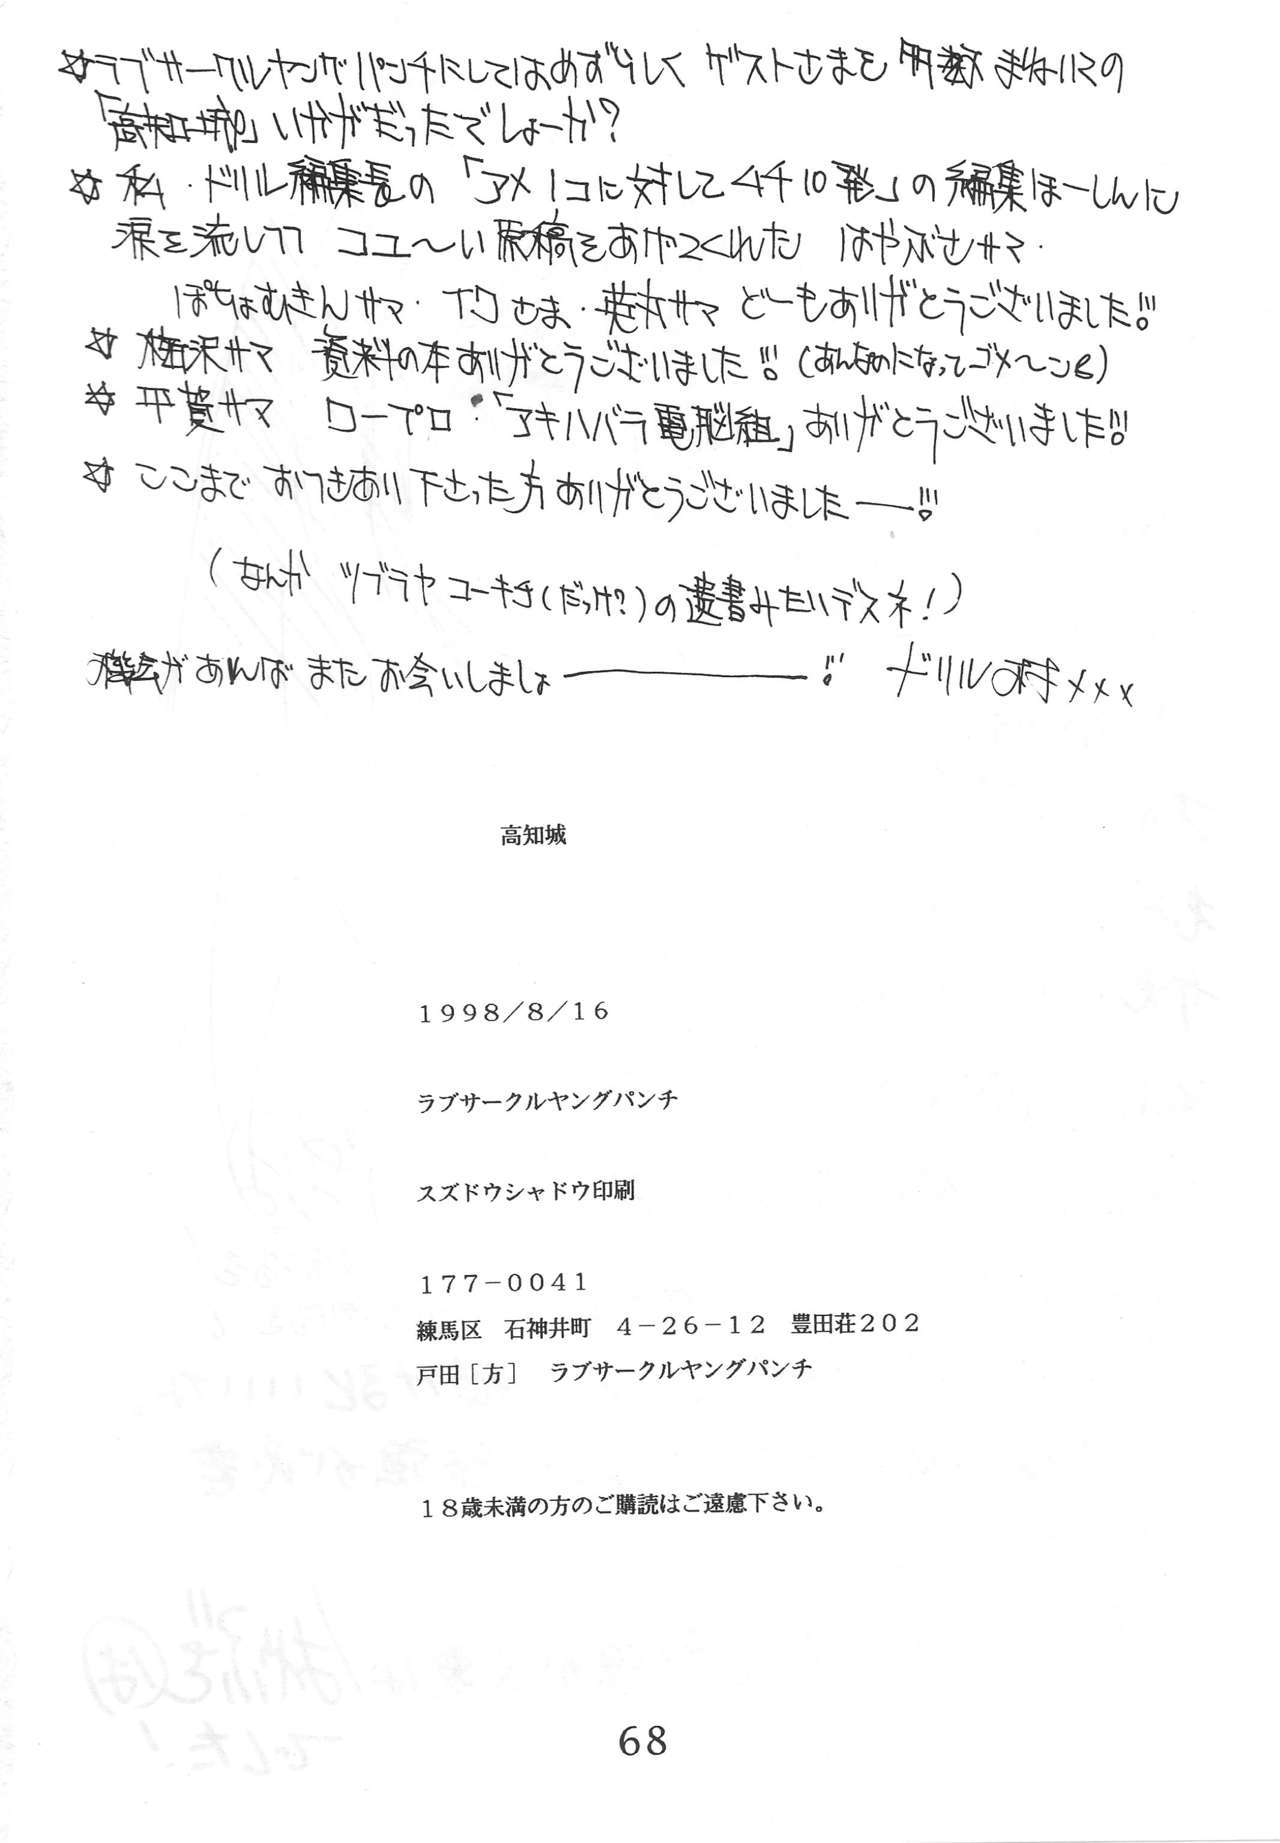 ☆ラブサークルヤングパンチにしてはめずらしく ゲストさまを 多数 まねいての
「高知城」いかがだったでしょーか?
☆私・ドリル編集長の「アメ1コに対してムチ10発」の編集ほーしんに
涙を流しつつ コユ〜い原稿をあげてくれた はやぶさサマ・
ぽちょむきんサマ・イワさま・ サマ どーもありがとうございました!!
☆梅沢サマ 資料の本ありがとうございました!!(あんなのになってゴメ〜ン)
☆平賀サマ ロープロ・「アキハバラ電脳組」ありがとうございました!!
☆ここまで おつきあり下さった方ありがとうございました——!!
(なんか ツブラヤ コーキチ(だっけ?)の遺書みたいデスネ!)
機会があれば また お会いしましょ————!! ドリル村×××
高知城
1998/8/16
ラブサークルヤングパンチ
スズドウシャドウ印刷
177-0041
練馬区 石神井町 4-26-12 豊田荘202
戸田[方] ラブサークルヤングパンチ
18歳未満の方のご購読はご遠慮下さい。
68